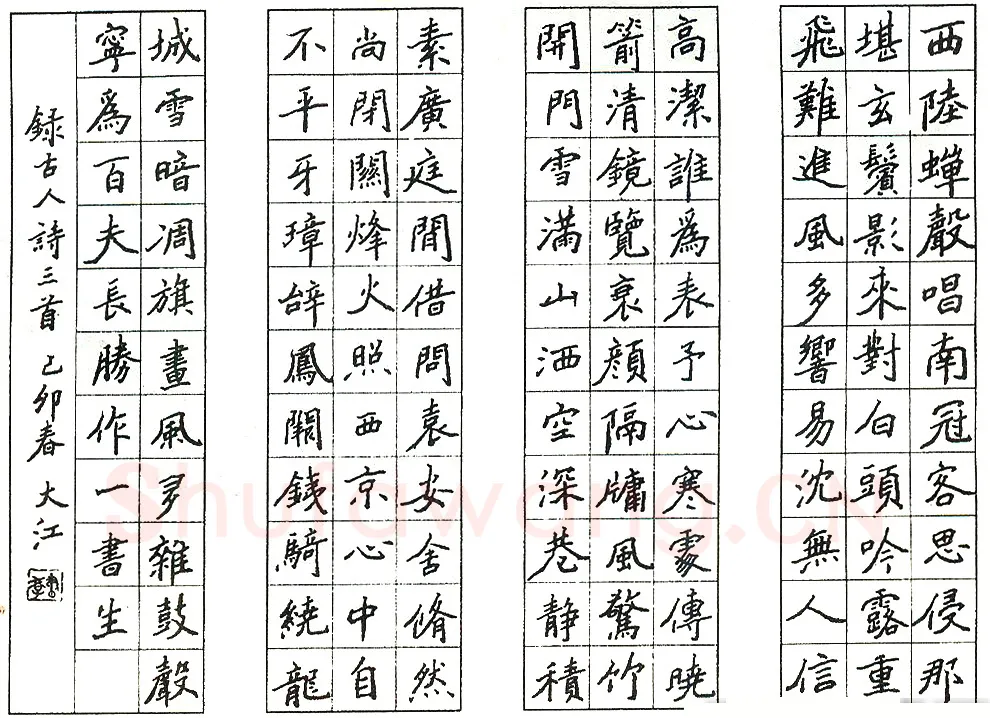 西陸蟬聲唱南冠客思侵那
堪玄鬢影來對白頭吟露重
飛難進風多響易沈無人信
高潔誰爲表予心寒更傳曉
箭清鏡覽衰顏隔牖風驚竹
開門雪滿山洒空深巷静積
素廣庭閒借問袁安舍翛然
尚閉關烽火照西京心中自
不平牙璋辭鳳闕銕騎繞龍
城雪暗凋旗畫風多雜鼓聲
寧爲百夫長勝作一書生
録古人詩三首 己卯春 大江
Shufawang.CN